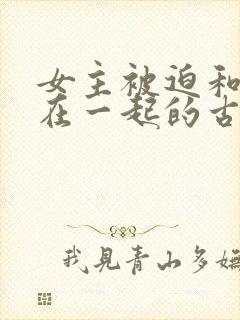 女主被迫和
在一起的古
我見青山多嫵